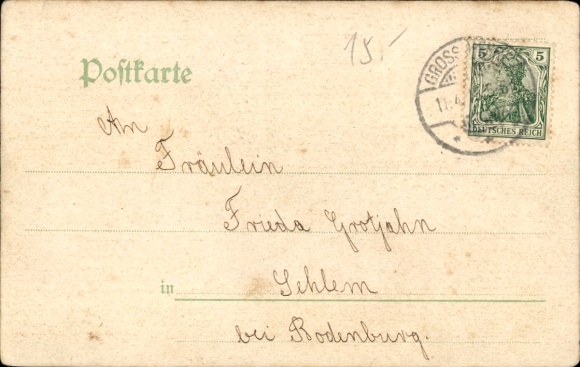 15.-
5 5
GROSS
11.4
DEUTSCHES REICH
Postkarte
An
Fräulein
Frieda Grotjahn
in Sehlem
bei Bodenburg.